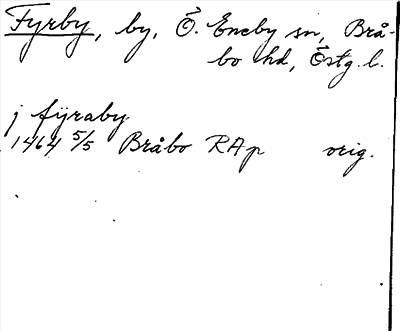 Fyrby, by, Ö. Eneby sn, Brå-
bo hd, Östg. l.
j fÿraby
1464 5/5 Bråbo RAp orig.